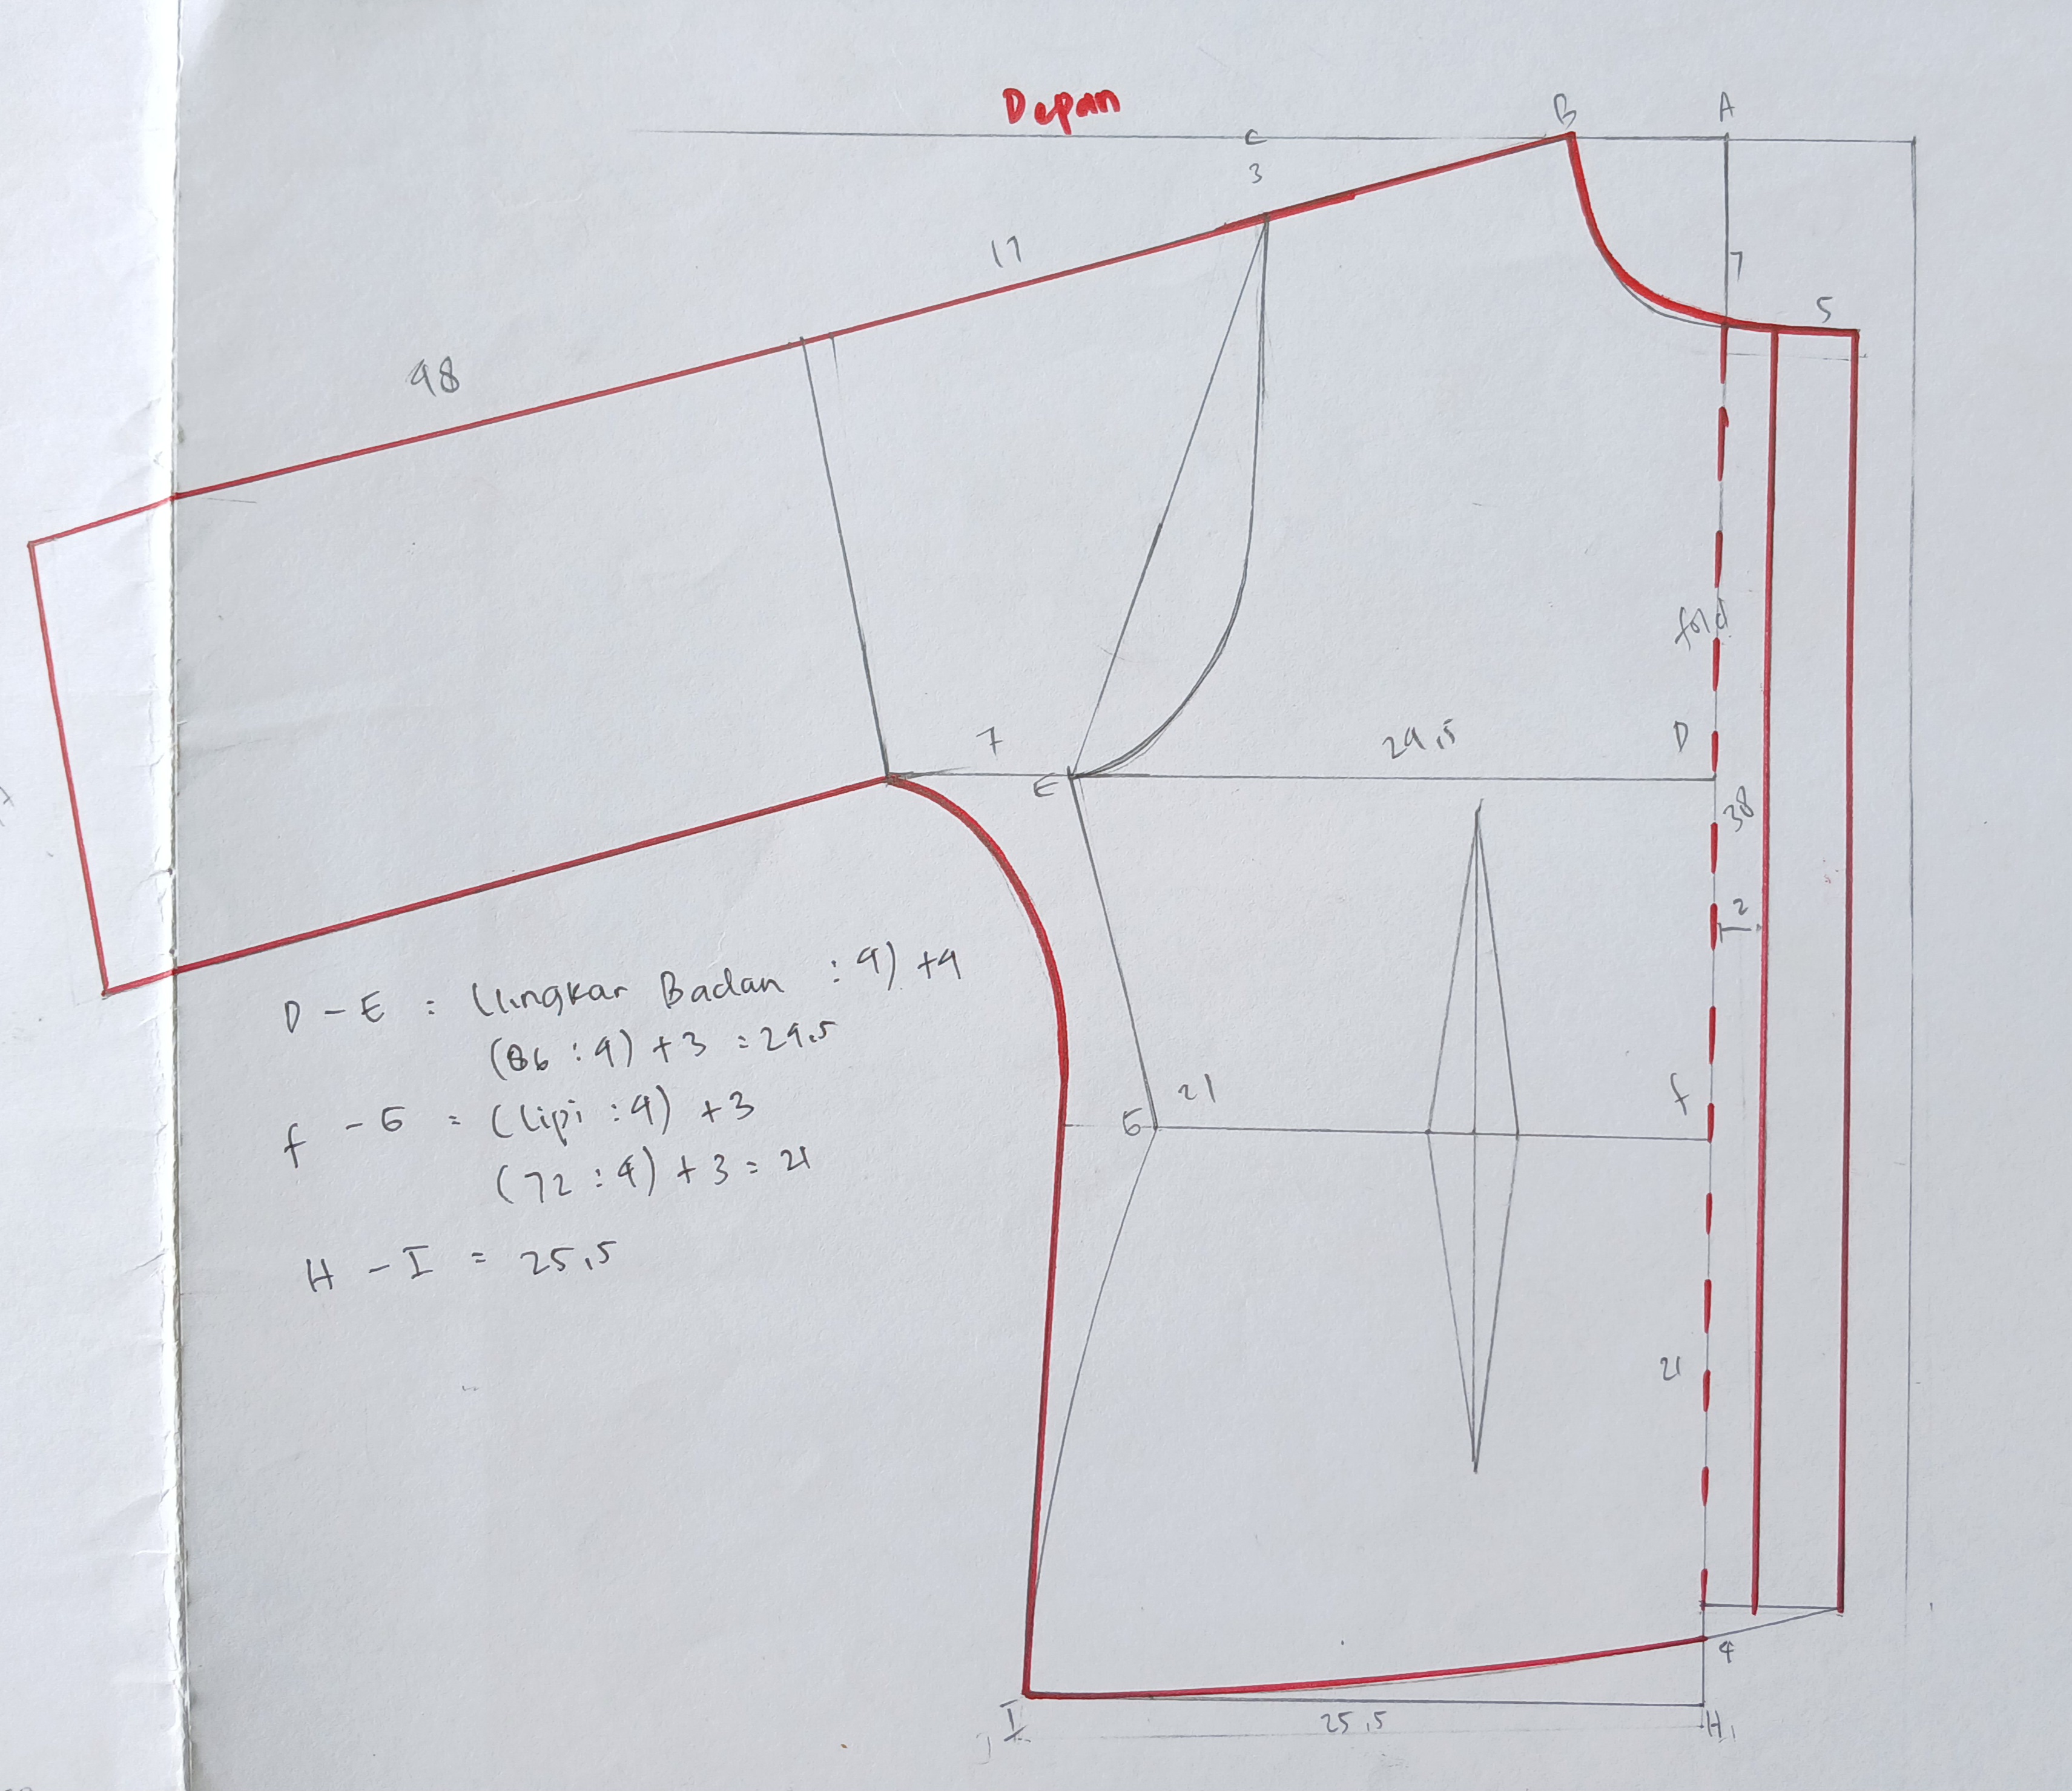 Depan
B
A
C
3
17
7
5
48
fold
D
24,5
7
E
38
2
D - E : (lingkar Badan : 4) + 4
(86 : 4) + 3 = 24.5
f - G = (lipi : 4) + 3
(72 : 4) + 3 = 21
H - I = 25,5
f
G
21
21
4
I
25,5
H